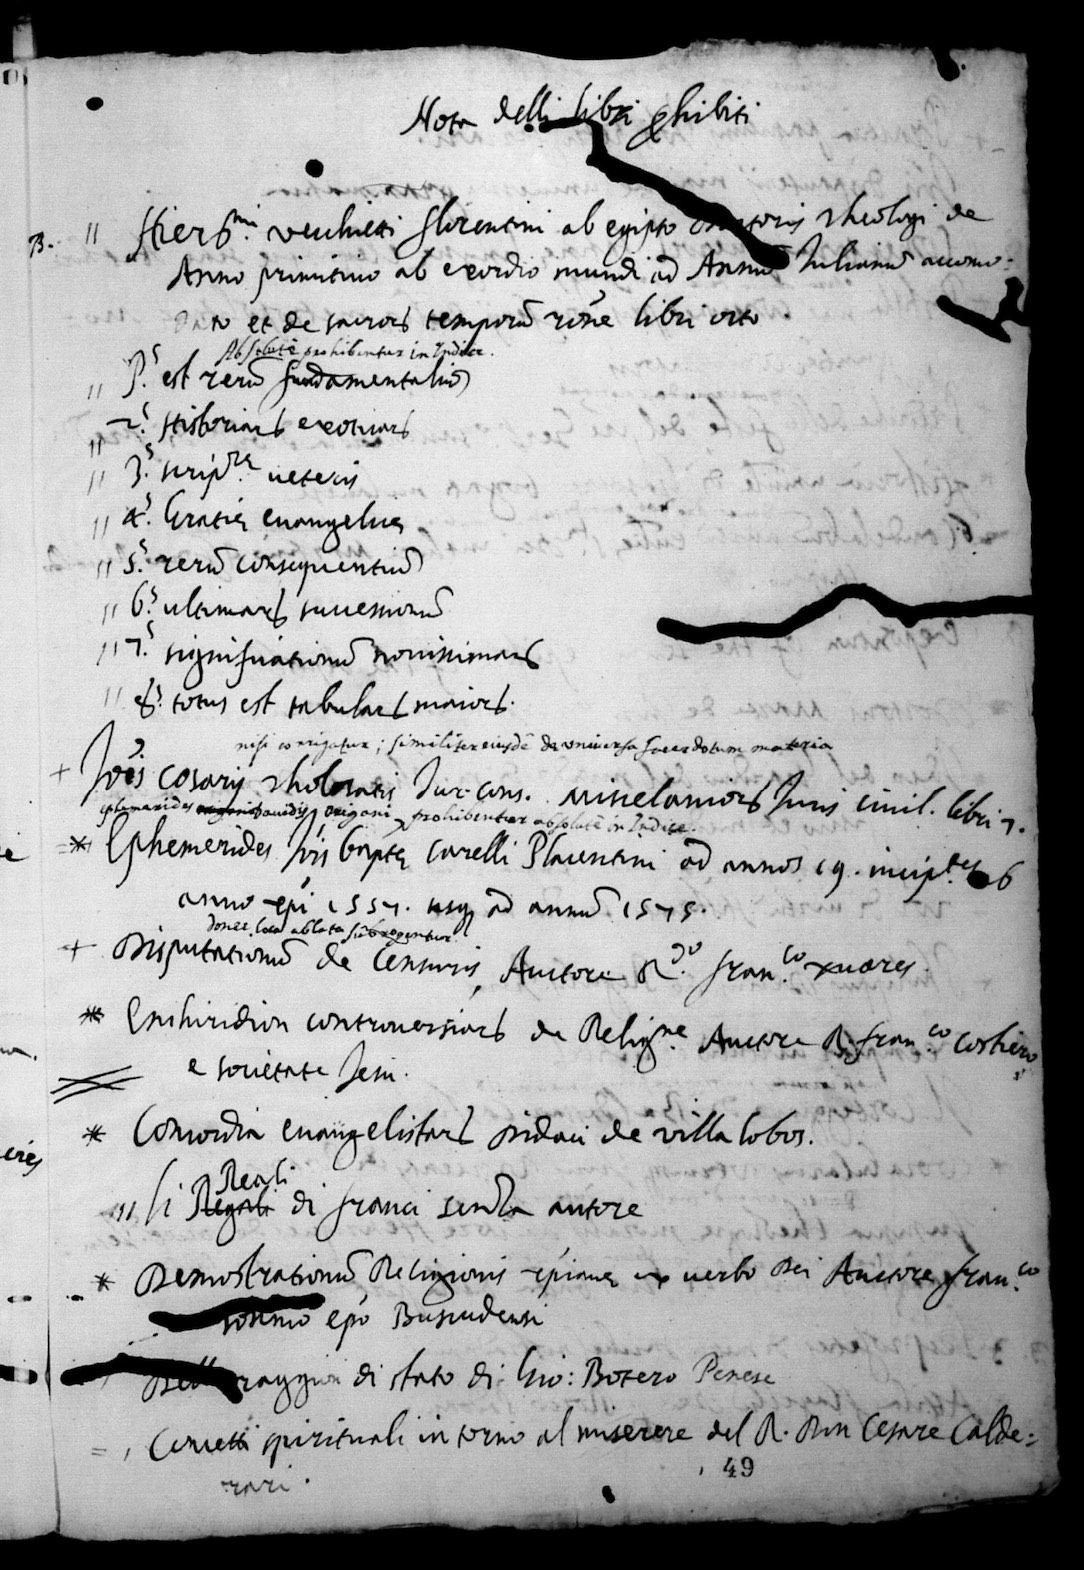 Nota delli libri ꝓhibiti
B. // Hierominj vechietti florentini ab egipto Doctoris Theologi de
Anno primitivo ab exordio mundi ad Annũ Iulianũ accomo=
dato et de sacrors temporũ rõne libri octo
Absolutè prohibentur in Indice.
// P.s est rerũ fundamentaliũ
// 2.s Historiars exoticars
// 3.s scripre veteris
// 4.s Gratiȩ evangelicȩ
// 5.s rerũ consequentiũ
// 6.s ultimars successionũ
// 7.s significationũ novissimars
// 8.s totus est tabulars maiors.
nisi corrigatur; similiter eiusdẽ de universa sacerdotum materia
+ Iõis Cesaris Iur: cons. Miscelaniors Iuris civil. libri 7.
ephemerides origani prohibentur absolutè in Indice.
=* Ephemerides Iõis baptȩ Carelli Placentini ad annos 19. incipes ab
anno xp̃i 1557. usq ad annũ 1575.
donec loca ablata sũbrogentur
+ Disputationũ de Censuris, Auctore R.do fran.co xuares.
* Enchiridion controversiars de Religne. Auctore R. fran.co Costero
e societate Iesu.
* Concordia evangelistars Didaci de villa lobos.
Reali
/// li Regali di franci senza autore
* Demostrationũ Religionis xp̃ianȩ ex verbo Dei Auctore fran.co
ep̃o
Della raggion di stato di Gio: Botero Penese
= , Concetti spirituali intorno al miserere del R. Don Cesare Calde=
rari.
49